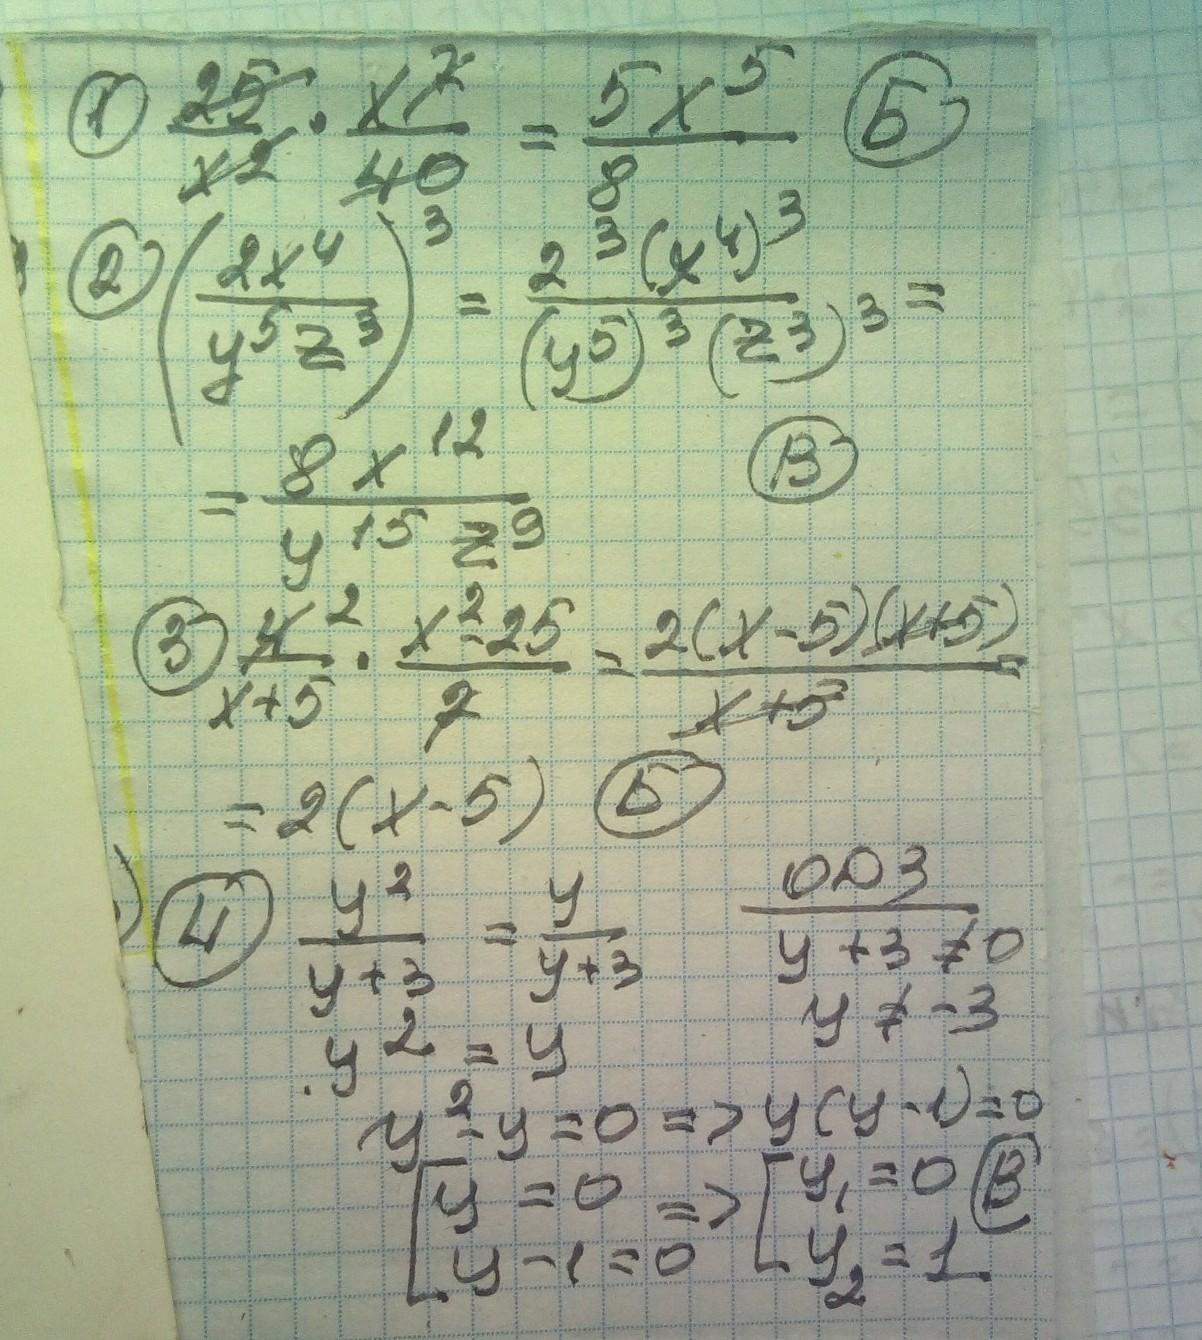 ① 25/x² · x⁷/40 = 5x⁵/8 Б
② (2x⁴/y⁵z³)³ = 2³(x⁴)³/(y⁵)³(z³)³ =
= 8x¹²/y¹⁵z⁹ В
③ 4²/x+5 · x²-25/2 = 2(x-5)(x+5)/x+5 =
= 2(x-5) Б
④ y²/y+3 = y/y+3 ОДЗ
y+3≠0
y² = y y≠-3
y²-y=0 => y(y-1)=0
[y=0 => [y₁=0 В
y-1=0 y₂=1